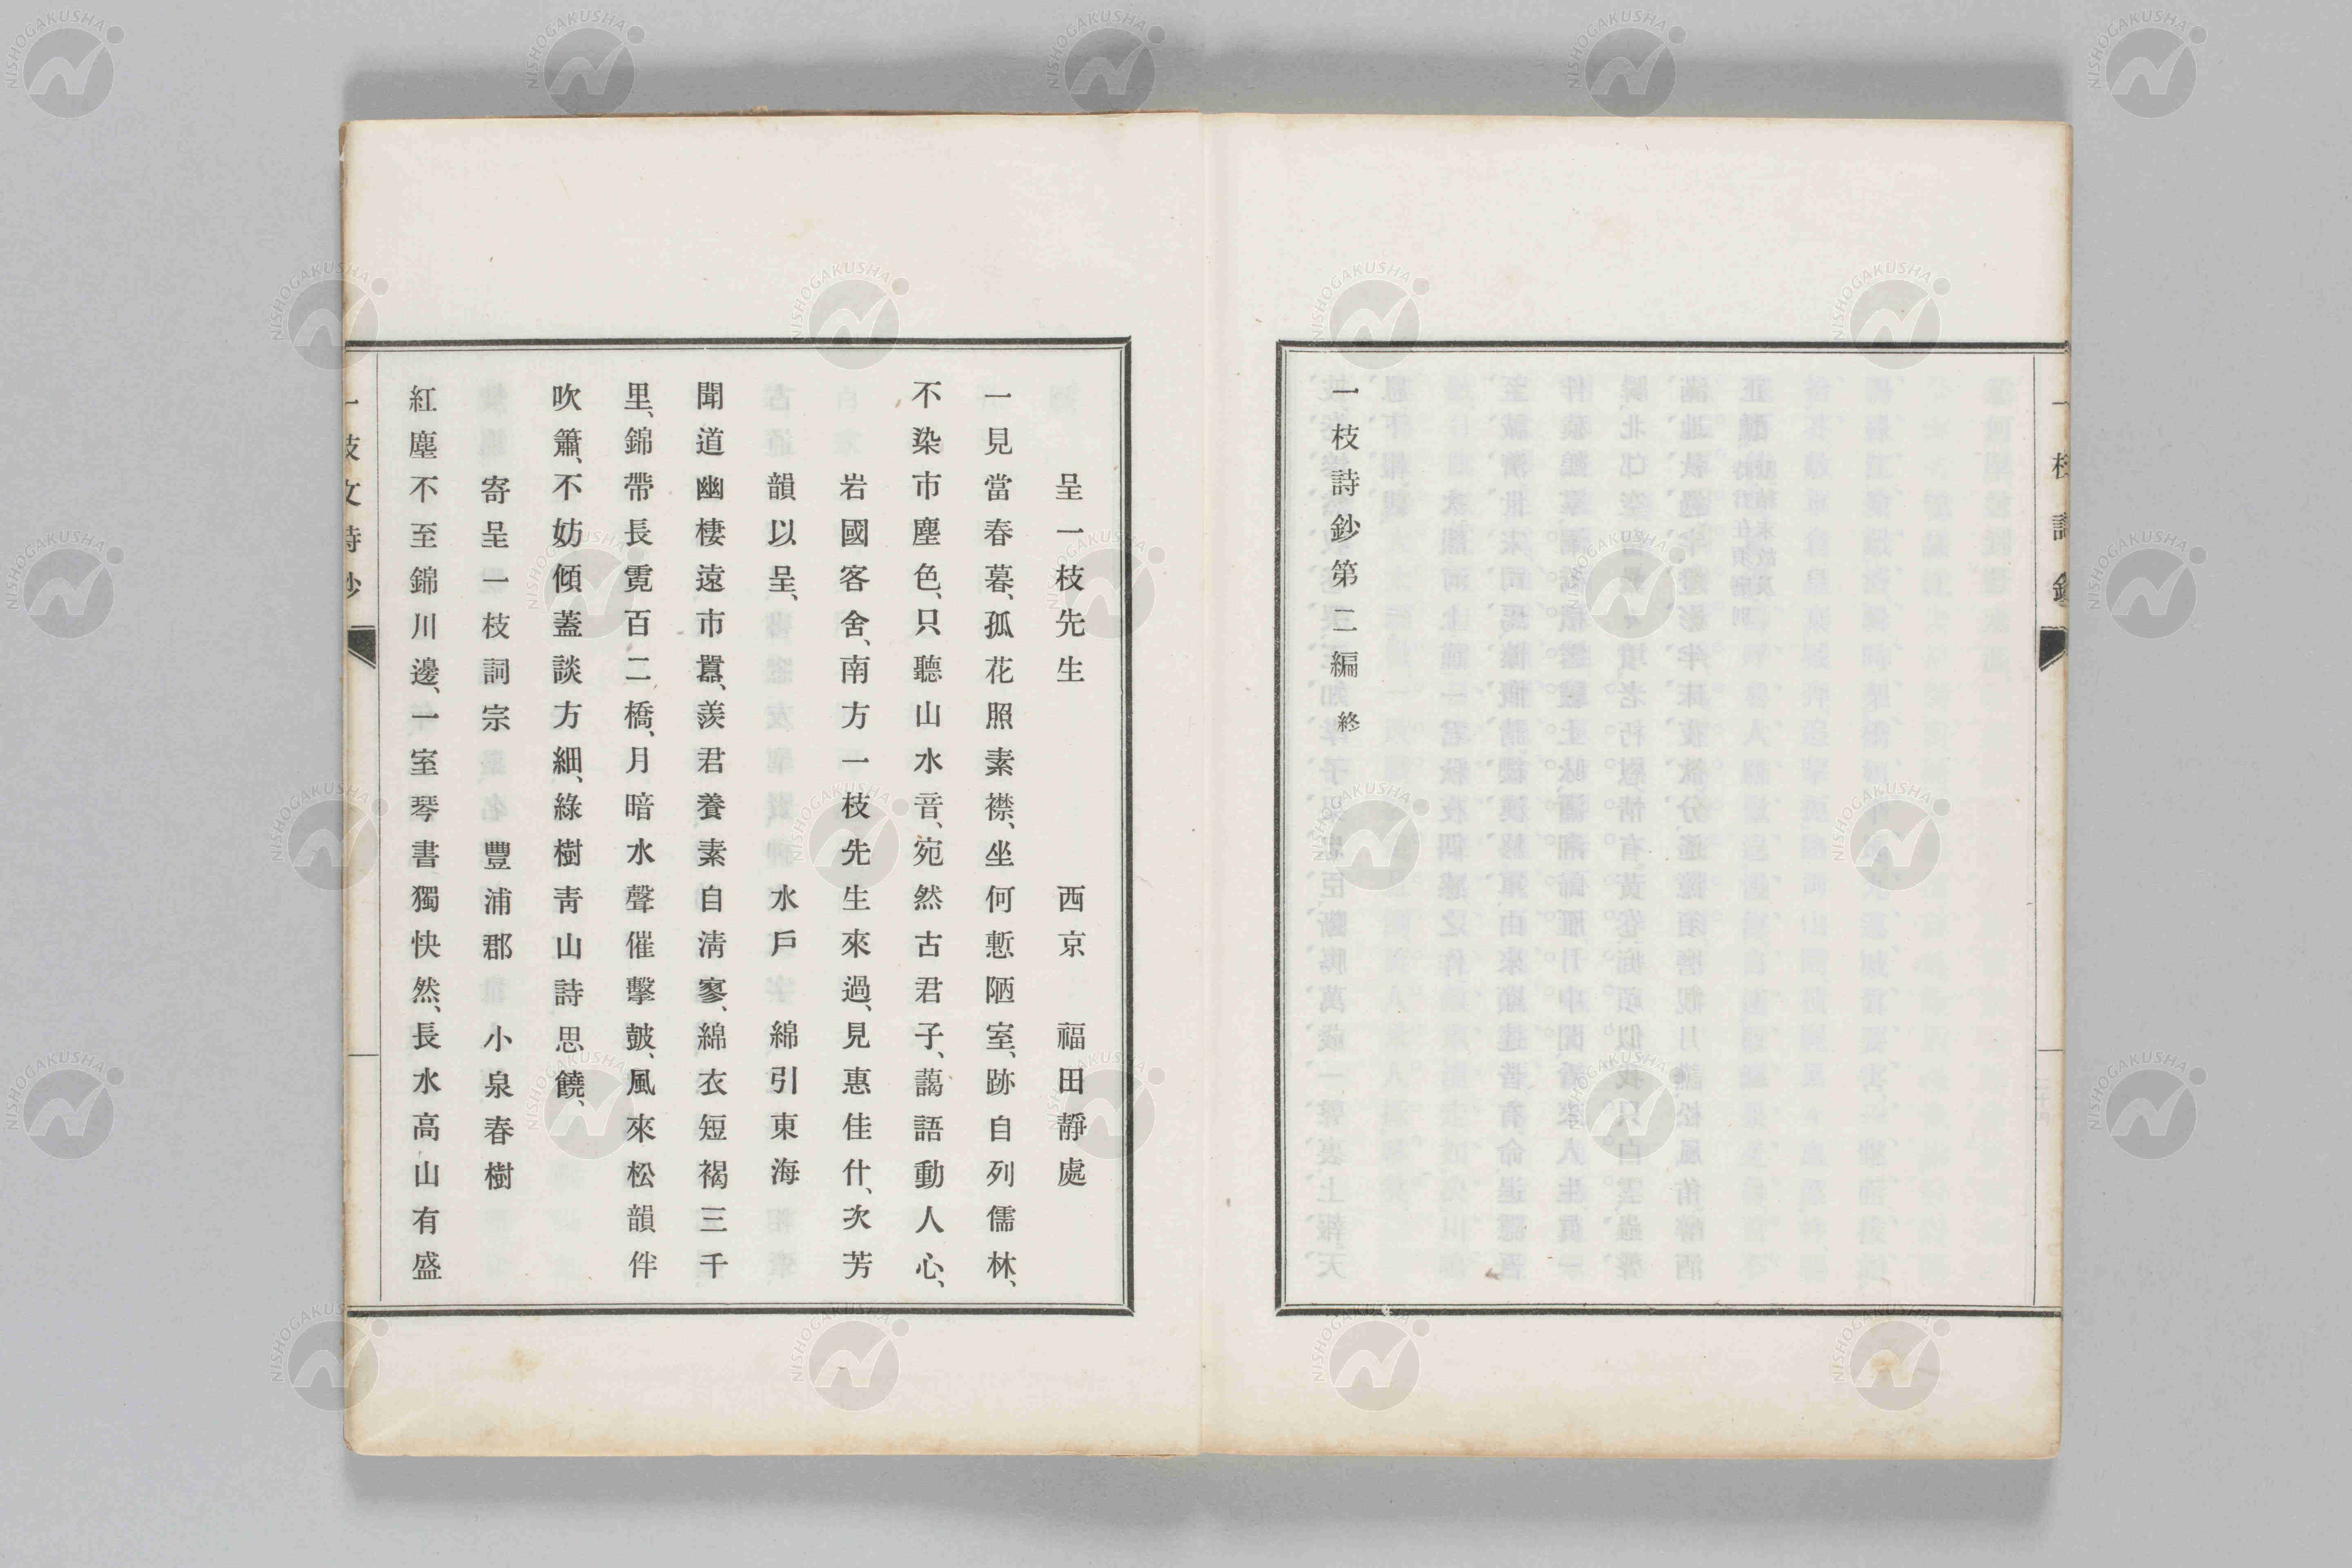 一枝詩鈔第二編 終
呈一枝先生 西京 福田靜處
一見當春暮、孤花照素襟、坐何慙陋室、跡自列儒林、
不染市塵色、只聽山水音、宛然古君子、藹語動人心、
岩國客舍、南方一枝先生來過、見惠佳什、次芳
韻以呈、 水戶 綿引東海
聞道幽棲遠市囂、羨君養素自淸寥、綿衣短褐三千
里、錦帶長霓百二橋、月暗水聲催擊皷、風來松韻伴
吹簫、不妨傾蓋談方細、綠樹靑山詩思饒、
寄呈一枝詞宗 豐浦郡 小泉春樹
紅塵不至錦川邊、一室琴書獨快然、長水高山有盛
一枝文詩鈔
NISHOGAKUSHA